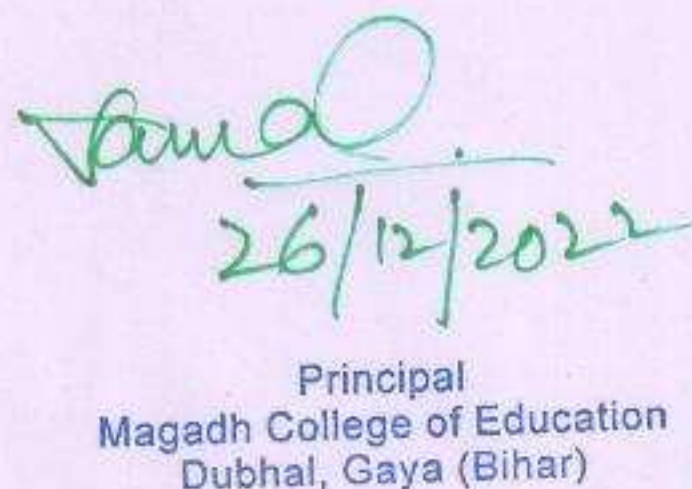 26/12/2022
Principal
Magadh College of Education
Dubhal, Gaya (Bihar)